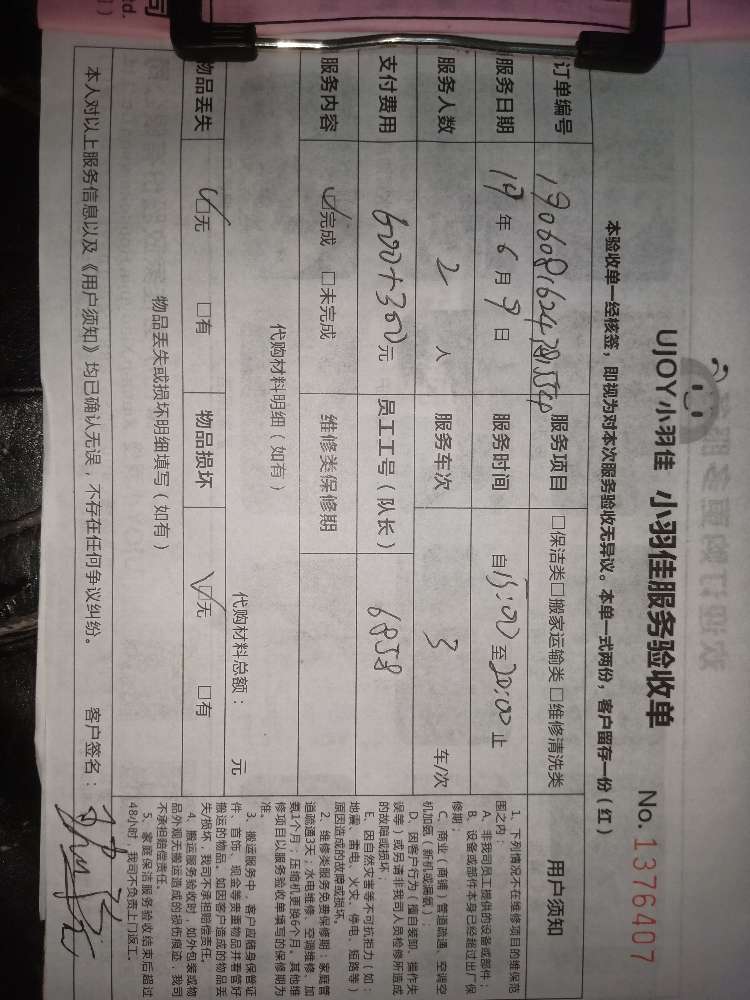 UJOY小羽佳 小羽佳服务验收单
No. 1376407
本验收单一经核签，即视为对本次服务验收无异议。本单一式两份，客户留存一份（红）
订单编号
服务项目 □保洁类□搬家运输类□维修清洗类
服务日期 19年6月9日 服务时间 自15:00至20:00止
服务人数 2人 服务车次 3车/次
支付费用 600+300元 员工工号（队长） 6858
服务内容 ☑完成 □未完成 维修类保修期
代购材料明细（如有）
代购材料总额： 元
物品丢失 ☑无 □有 物品损坏 ☑无 □有
物品丢失或损坏明细填写（如有）
本人对以上服务信息以及《用户须知》均已确认无误，不存在任何争议纠纷。 客户签名：
用户须知
1、下列情况不在维修项目的维保范
围之内：
A、非我司员工提供的设备或部件；
B、设备或部件本身已经超过出厂保
修期；
C、商业（商铺）管道疏通、空调空
机加氨（新机或漏氨）；
D、因客户行为（擅自装卸、操作失
误等）或另请非我司人员检修所造成
的故障或损坏；
E、因自然灾害等不可抗拒力（如：
地震、雷电、火灾、停电、短路等）
原因造成的故障或损坏。
2、维修类服务免费保修期：家庭管
道疏通3天；水电维修、空调维修、加
氨1个月；压缩机更换6个月。其他维
修项目以服务验收单填写的保修期为
准。
3、搬运服务中，客户应随身保管证
件、首饰、现金等贵重物品并看管好
搬运的物品。如因客户造成的物品丢
失/损坏，我司不承担赔偿责任。
4、搬运服务验收时，如外包装或物
品外观无搬运造成的损伤痕迹，我司
不承担赔偿责任。
5、家庭保洁服务验收结束后超过
48小时，我司不负责上门返工。